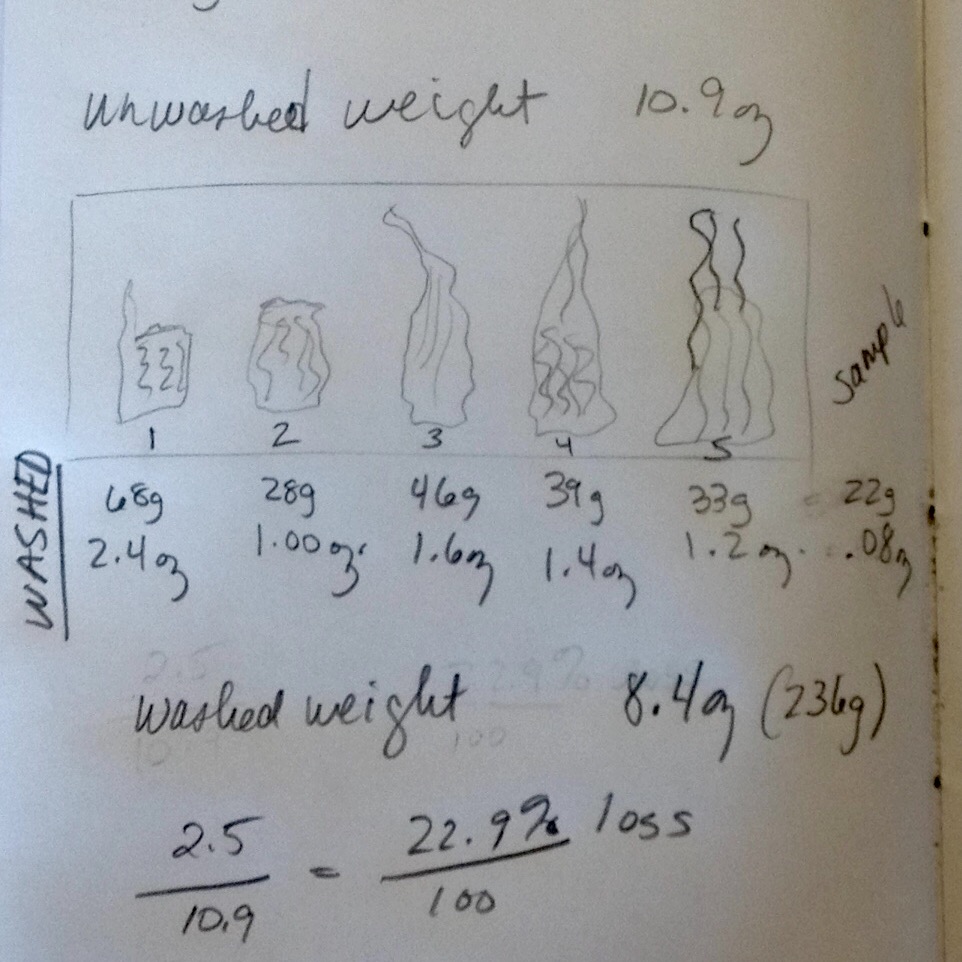 unwashed weight 10.9oz
1 2 3 4 5 sample
WASHED
68g 28g 46g 39g 33g 22g
2.4oz 1.00oz. 1.6oz 1.4oz 1.2oz. .08oz
washed weight 8.4oz (236g)
2.5 = 22.9% loss
10.9 100